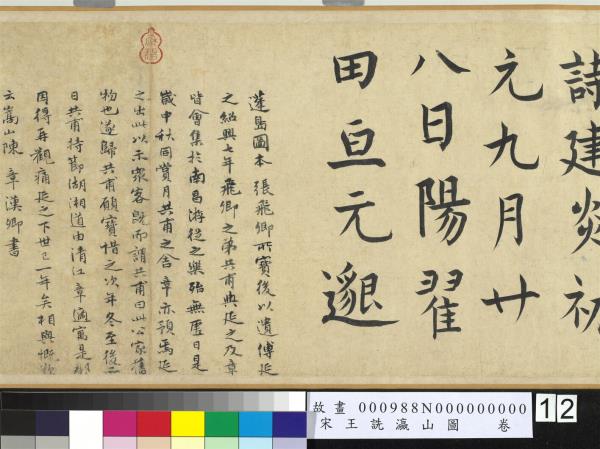 詩建炎初
元九月廿
八日陽翟
田亘元邈
蓬島圖本張飛卿所寶後以遺傅延
之紹興七年飛卿之弟共甫與延之及章
皆會集於南昌游從之樂殆無虛日是
歲中秋同賞月共甫之舍章亦預焉延
之出此以示眾客既而謂共甫曰此公家舊
物也遂歸共甫願寶惜之次年冬至後二
日共甫持節湖湘道由清江章適寓是
因得再觀痛延之下世已一年矣相與慨歎
云嵩山陳章漢卿書
故畫 000988N000000000
宋王詵瀛山圖 卷
12